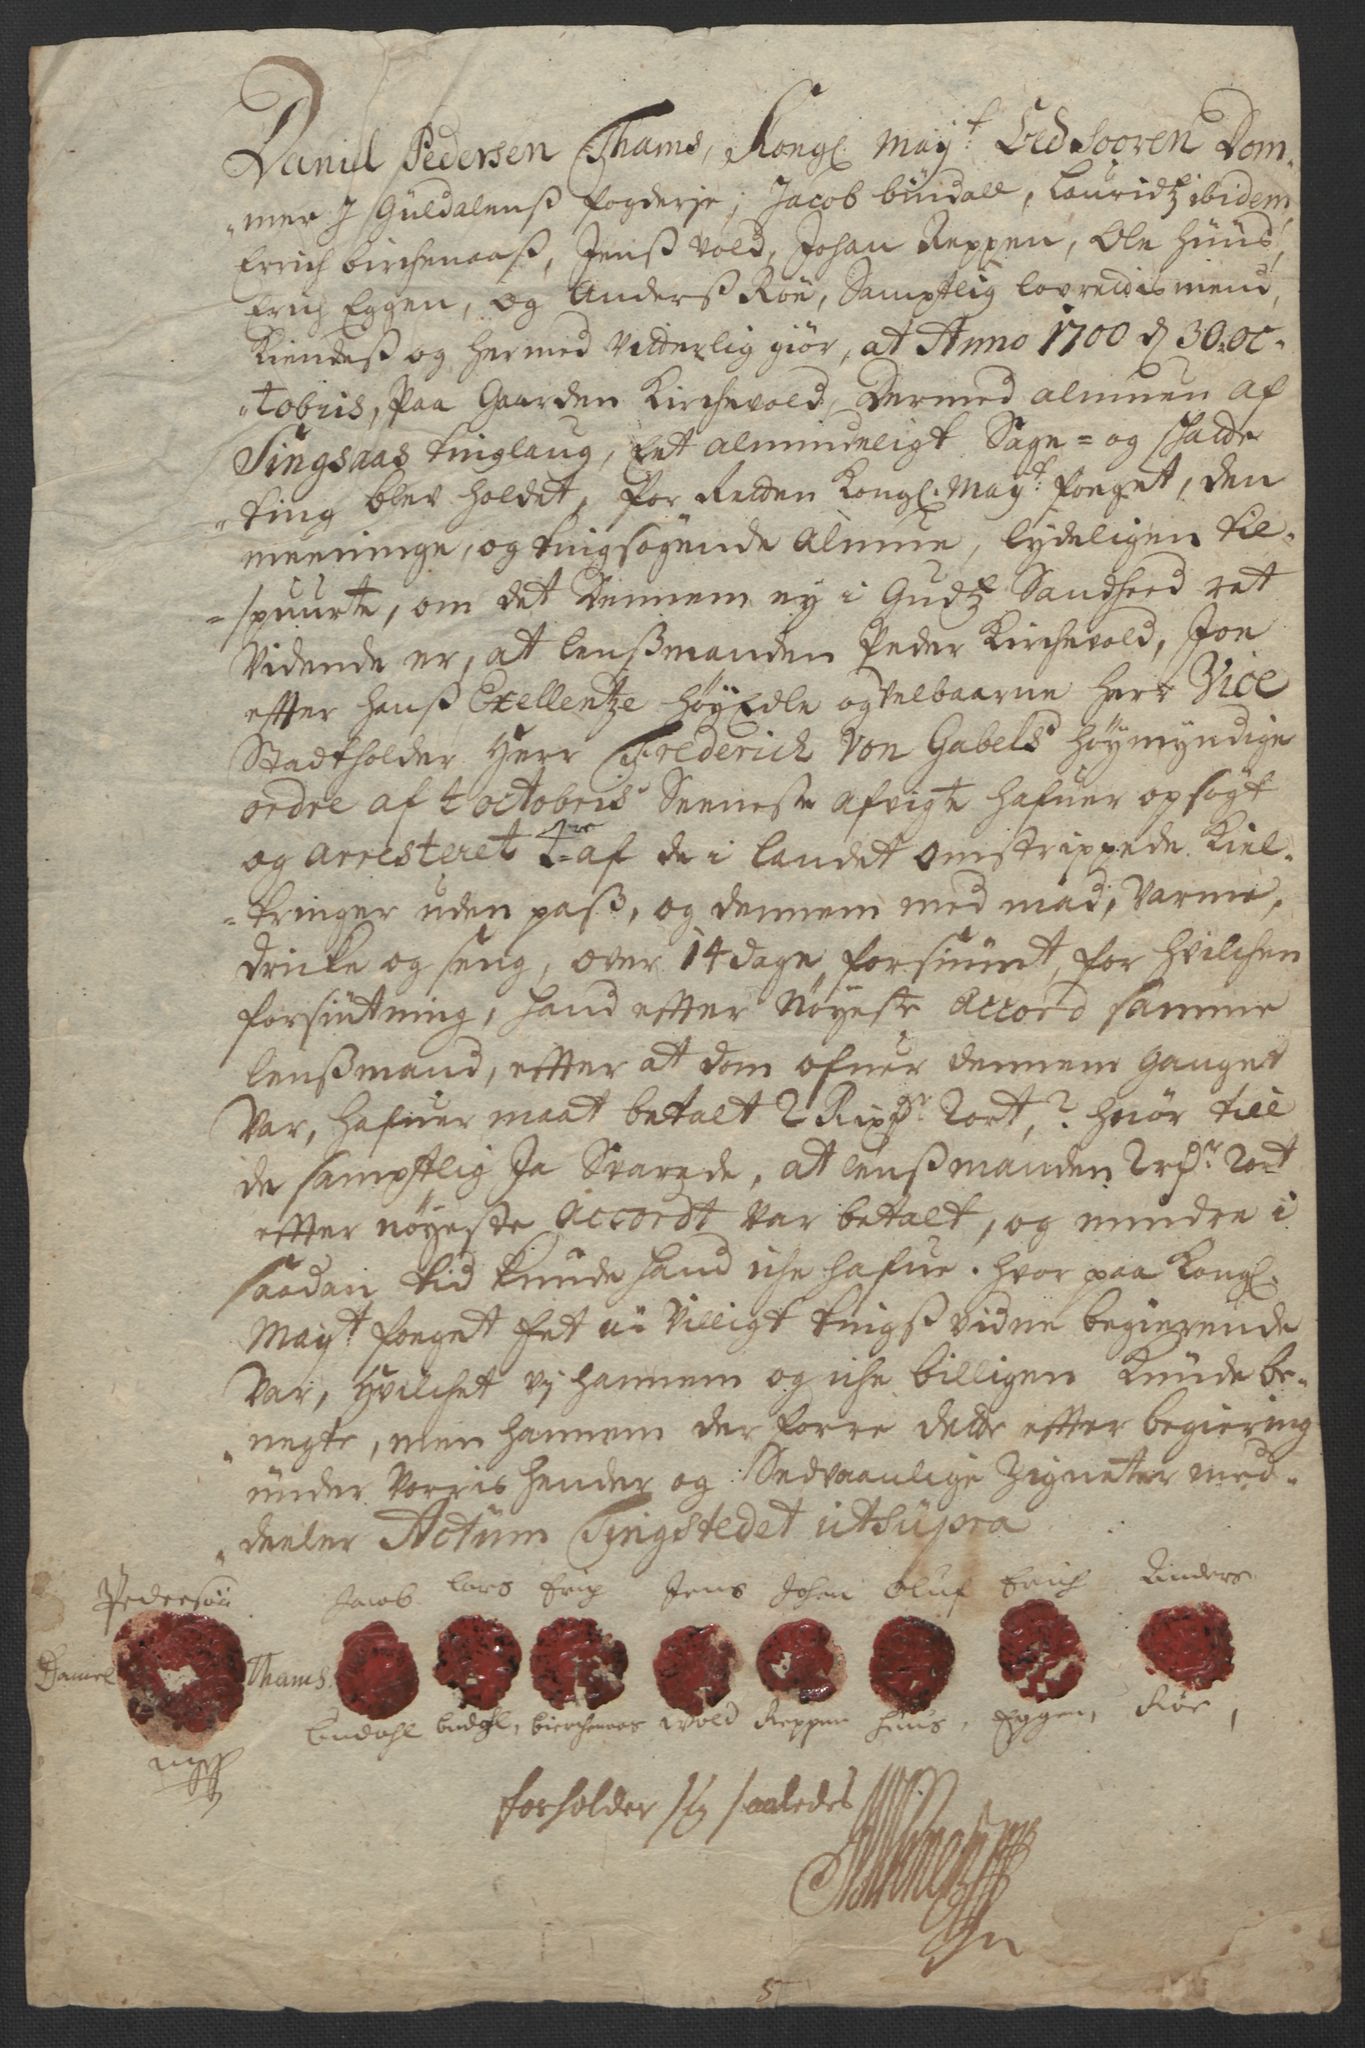 Daniel Pedersen Thams, Kongl. May.t Eedsooren Dom-
mer I Guldalenß fogderje, Jacob bündall, Lauridtz ibidem,
Errich birchenaaß, Jenß Vold, Johan Reppen, Ole Hüüs,
Erich Eggen, og Anderß Röe, Samptlig lovrettis mend,
Kiendeß og hermed Vitterlig giör, at Anno 1700 d. 30. oc-
tobris, paa Gaarden Kirchevold, Dermed almuen af
Singsaas tinglaug, Eet almindeligt Sage- og schatte
ting blev holdet, for Retten Kongl. May.t foeget, den
meeninge, og tingsögende Almue, lydeligen til-
spuurte, om det dennem ey i Gudtz Sandhed ret
Vidende er, at lenßmanden Peder Kirchevold, Jon
effter hanß Exellentze HöyEdle og Velbaarne Herr Vice
Stadtholder Herr Frederich Von Gabels höymyndige
ordre af 2 octobris Seeneste afvigte hafuer opsögt
og arresteret af de i landet omstrippede Kiel-
tringer uden paß, og dennem med mad, Varme,
dricke og seng, over 14 dage, forsiünt, for hvilchen
forsiüning, hand effter Nöyeste Accord samme
lenßmand, effter at dom ofuer dennem ganget
Var, hafuer maat betalt 2 Rixdr. 2 ort,? huor till
de samptlig Ja Svarede, at lenßmanden 2 rdr. 2 ort
effter nöyeste Accordt Var betalt, og mindre i
saadan tid kunde hand iche hafue. hvor paa Kongl.
May.t foeget Eet u-Villigt tingß vidne begierende
Var, hvilchet vj hannem og iche billigen Kunde be-
negte, men hannem der forre dette effter begiering
ünder Vorris hender og Sedvaanlige Zigneter med-
deeler Actüm Tingstedet ut süpra
Pedersön Jacob Lars Erich Jens Johan Oluf Erich Anders
Daniel Thams
Bndahl, Bndahl, bierchenaas Wold Reppen Hüüs, Eggen, Röe,
mpp
forholder sig saaledes
5